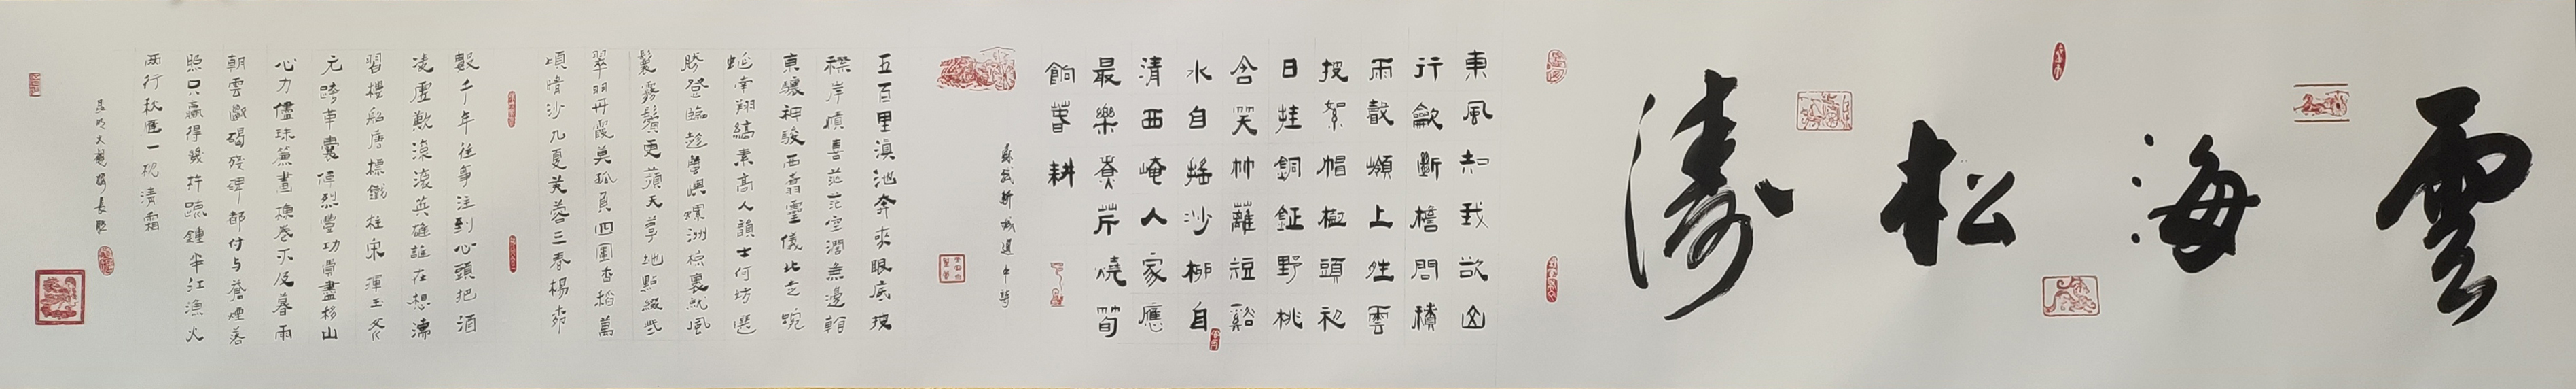 雲海松濤
東風知我欲山
行歙斷檐間積
雨聲嶺上晴雲
披絮帽樹頭初
日挂銅鉦野桃
含笑竹蘺短谿
水自搖沙柳自
清西崦人家應
最樂煑芹燒筍
餉萅耕
蘇軾新城道中詩
五百里滇池奔來眼底披
襟岸幘喜茫茫空濶無邊看
東驤神駿西翥靈儀北走蜿
蜒南翔縞素高人韻士何坊選
勝登臨趁蟹嶼螺洲梳裹就風
鬟霧鬢更蘋天葦地點綴些
翠羽丹霞莫孤負四圍香稻萬
頃晴沙九夏芙蓉三春楊柳
數千年往事注到心頭把酒
凌虛歎滾滾英雄誰在想漢
習樓船唐標鐵柱宋揮玉斧
元跨革囊偉烈豐功費盡移山
心力儘珠簾畫棟卷不及暮雨
朝雲斷碣殘碑都付与蒼煙落
照只贏得幾杵疏鐘半江漁火
兩行秋雁一枕清霜
昆明大觀樓長聯